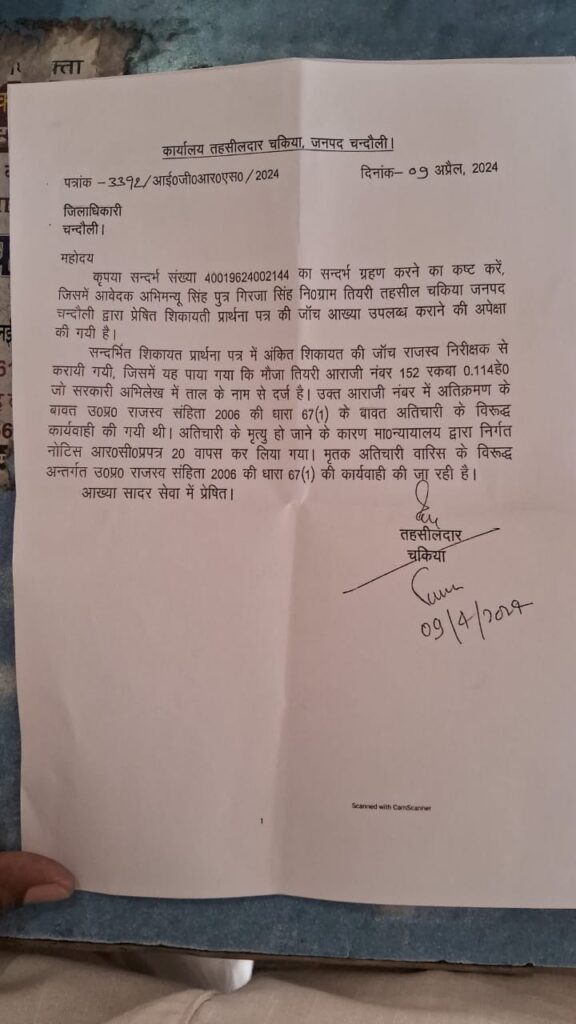 क्ता
कार्यालय तहसीलदार चकिया, जनपद चन्दौली।
पत्रांक -3392/आई0जी0आर0एस0/2024 दिनांक- 09 अप्रैल, 2024
जिलाधिकारी
चन्दौली।
महोदय
कृपया सन्दर्भ संख्या 40019624002144 का सन्दर्भ ग्रहण करने का कष्ट करें,
जिसमें आवेदक अभिमन्यू सिंह पुत्र गिरजा सिंह नि0ग्राम तियरी तहसील चकिया जनपद
चन्दौली द्वारा प्रेषित शिकायती प्रार्थना पत्र की जॉच आख्या उपलब्ध कराने की अपेक्षा
की गयी है।
सन्दर्भित शिकायत प्रार्थना पत्र में अंकित शिकायत की जॉच राजस्व निरीक्षक से
करायी गयी, जिसमें यह पाया गया कि मौजा तियरी आराजी नंबर 152 रकबा 0.114हे0
जो सरकारी अभिलेख में ताल के नाम से दर्ज है। उक्त आराजी नंबर में अतिक्रमण के
बावत उ0प्र0 राजस्व संहिता 2006 की धारा 67(1) के बावत अतिचारी के विरूद्ध
कार्यवाही की गयी थी। अतिचारी के मृत्यु हो जाने के कारण मा0न्यायालय द्वारा निर्गत
नोटिस आर0सी0प्रपत्र 20 वापस कर लिया गया। मृतक अतिचारी वारिस के विरूद्ध
अन्तर्गत उ0प्र0 राजस्व संहिता 2006 की धारा 67(1) की कार्यवाही की जा रही है।
आख्या सादर सेवा में प्रेषित।
तहसीलदार
चकिया
09/4/2024
Scanned with CamScanner
1